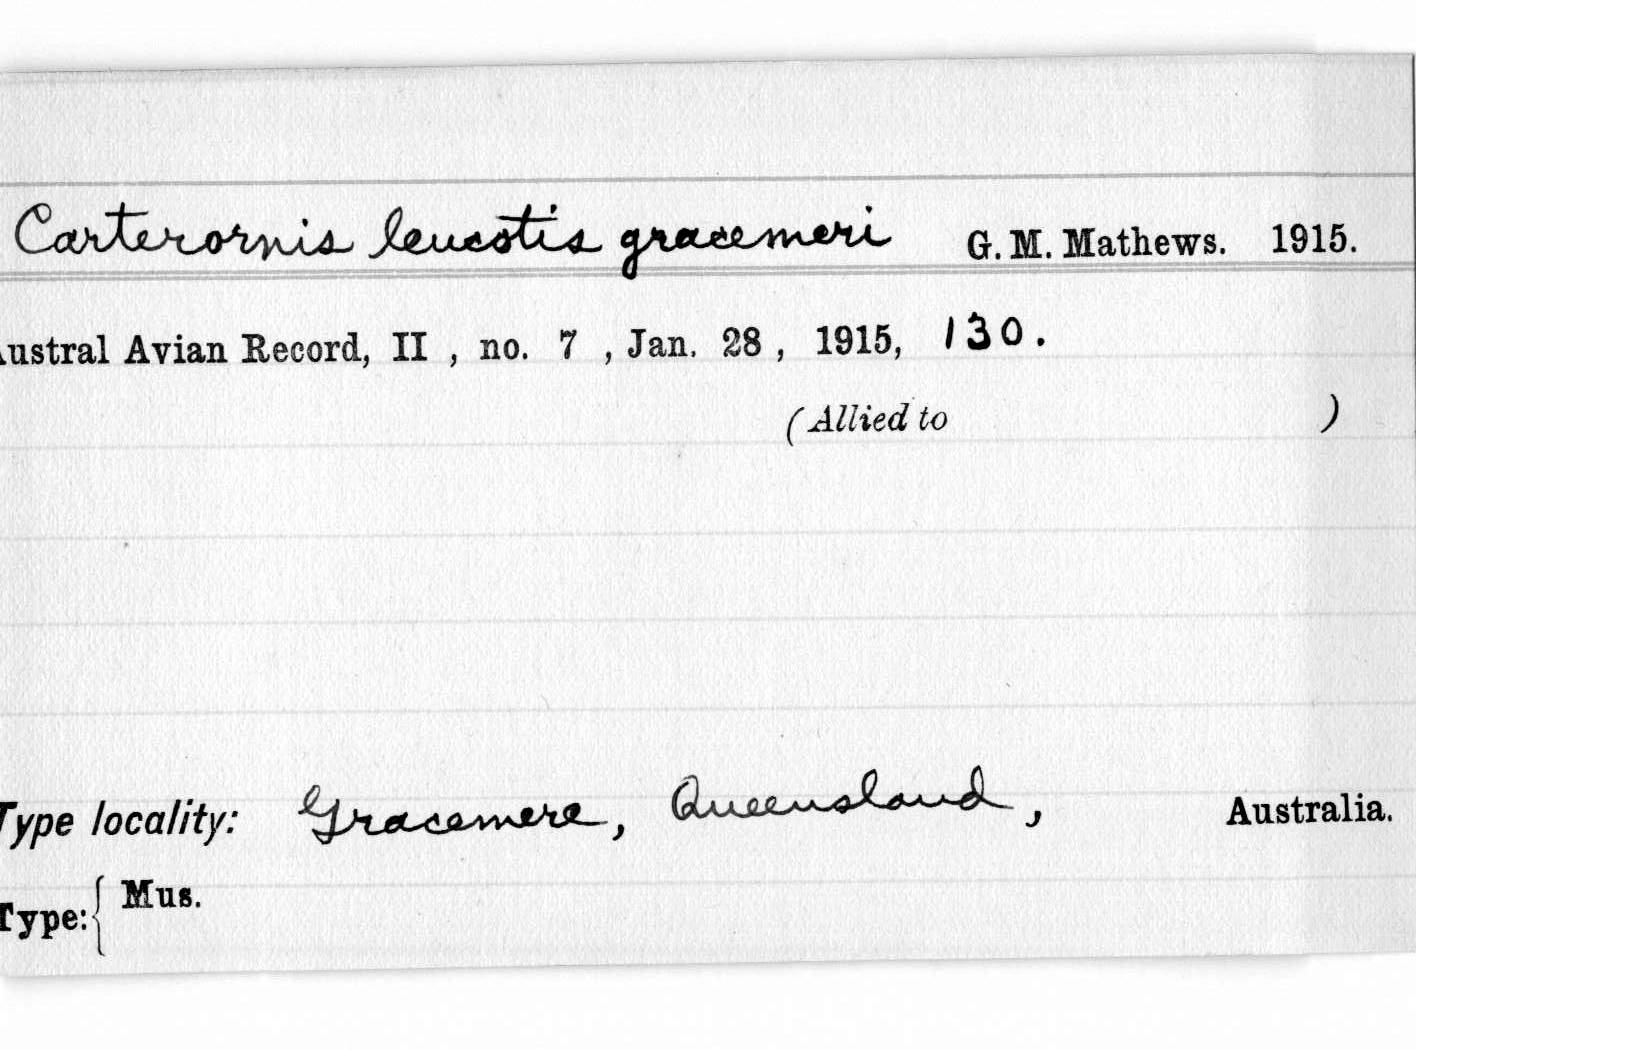 Carterornis leucotis gracemeri G. M. Mathews. 1915.
Austral Avian Record, II , no. 7 , Jan. 28 , 1915, 130.
(Allied to )
Type locality: Gracemere, Queensland, Australia.
Type: { Mus.